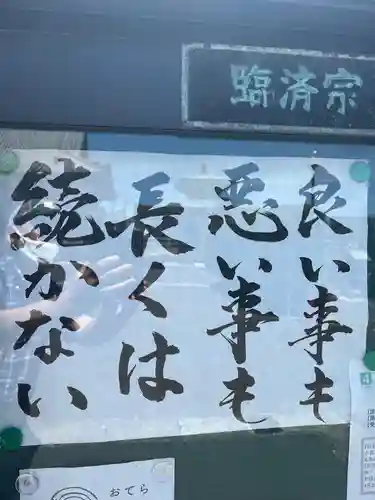 臨済宗
良い事も
悪い事も
長くは
続かない
おてら